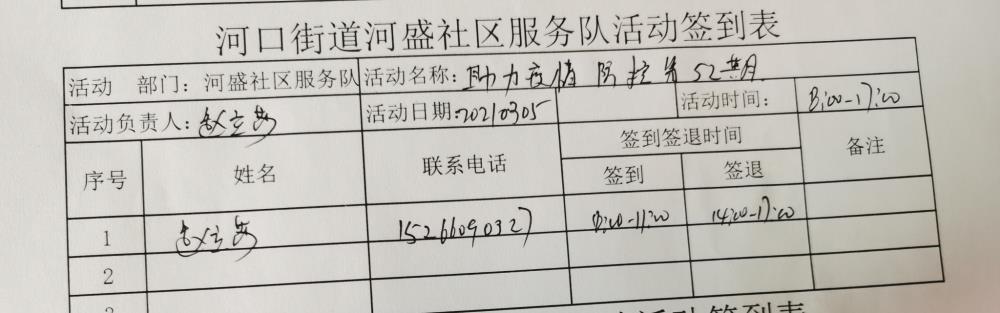 河口街道河盛社区服务队活动签到表
活动 部门：河盛社区服务队 活动名称：助力疫情防控第52期
活动负责人： 活动日期:20210305 活动时间： 8:00-17:00
序号 姓名 联系电话 签到签退时间 备注
签到 签退
1 15266090327 8:00-11:00 14:00-17:00
2